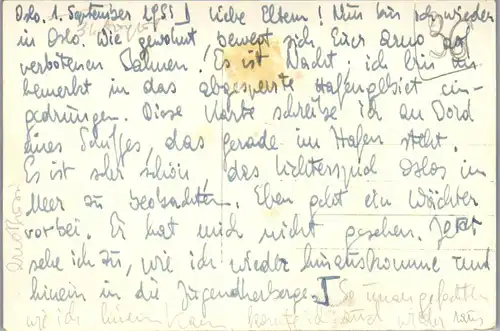 Oslo, 1. September 1955 I liebe Eltern! Nun bin ich wieder
in Oslo. Wie gewohnt bewegt sich Euer Arno auf
verbotenen Bahnen! Es ist Nacht, ich bin un
bemerkt in das abgesperrte Hafengebiet ein-
gedrungen. Diese Karte schreibe ich an Bord
eines Schiffes, das gerade im Hafen steht.
Es ist sehr schön, das Lichterspiel Oslos im
Meer zu beobachten. Eben geht ein Wächter
vorbei. Er hat mich nicht gesehen. Jetzt
sehe ich zu, wie ich wieder hinauskomme und
hinein in die Jugendherberge. I So unangefochten
wie ich hinein kam konnte ich auch wieder raus